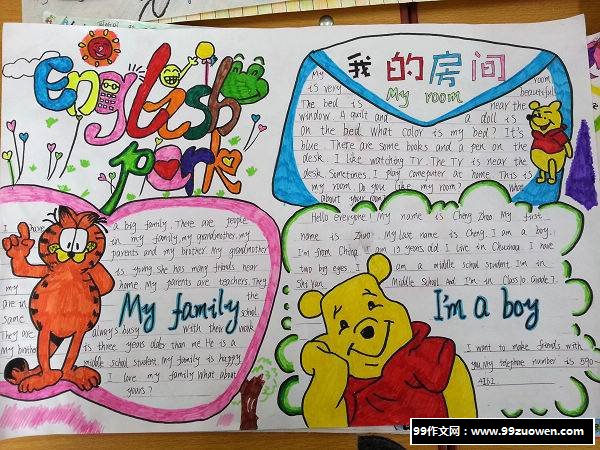 English
park
我的房间
My room
My room
is very beautiful
The bed is near the
window. A quilt and a doll is
on the bed. What color is my bed? It's
blue. There are some books and a pen on the
desk. I like watching TV. The TV is near the
desk. Sometimes I play computer at home. This is
my room. Do you like my room? What
about your room?
I have a big family. There are people
in my family, my grandmother, my
parents and my brother. My grandmother
is young she has many friends near
home. My parents are teachers. They
are in the
same school.
They are always busy with their work
My brother is three years older than me. He is a
middle school student. My family is happy
I love my family. What about
yours?
My family
Hello everyone! My name is Cheng Zhao My first
name is Zhao. My last name is Cheng. I am a boy.
I'm from China. I am 13 years old. I live in I have
two big eyes. I am a middle school student. I'm in
Middle School And I'm in Class10 Grade7.
I'm a boy
I want to make friends with
you. My telephone number is 590-
4162
99作文网：www.99zuowen.com